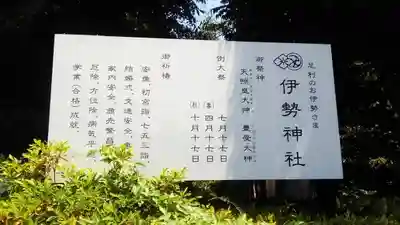 足利のお伊勢さま
伊勢神社
御祭神
天照皇大神 豊受大神
例大祭
七月十七日
春 四月十七日
秋 十月十七日
御祈禱
安産、初宮詣、七五三詣、
結婚式、交通安全、
家内安全、商売繁昌、
厄除、方位除、病気平癒、
学業(合格)成就、